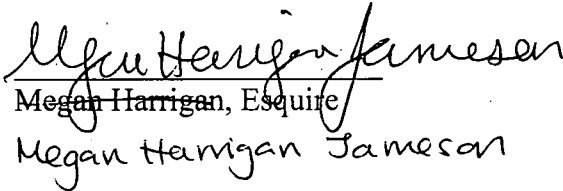 Megan Harrigan Jameson
Megan Harrigan, Esquire
Megan Harrigan Jameson